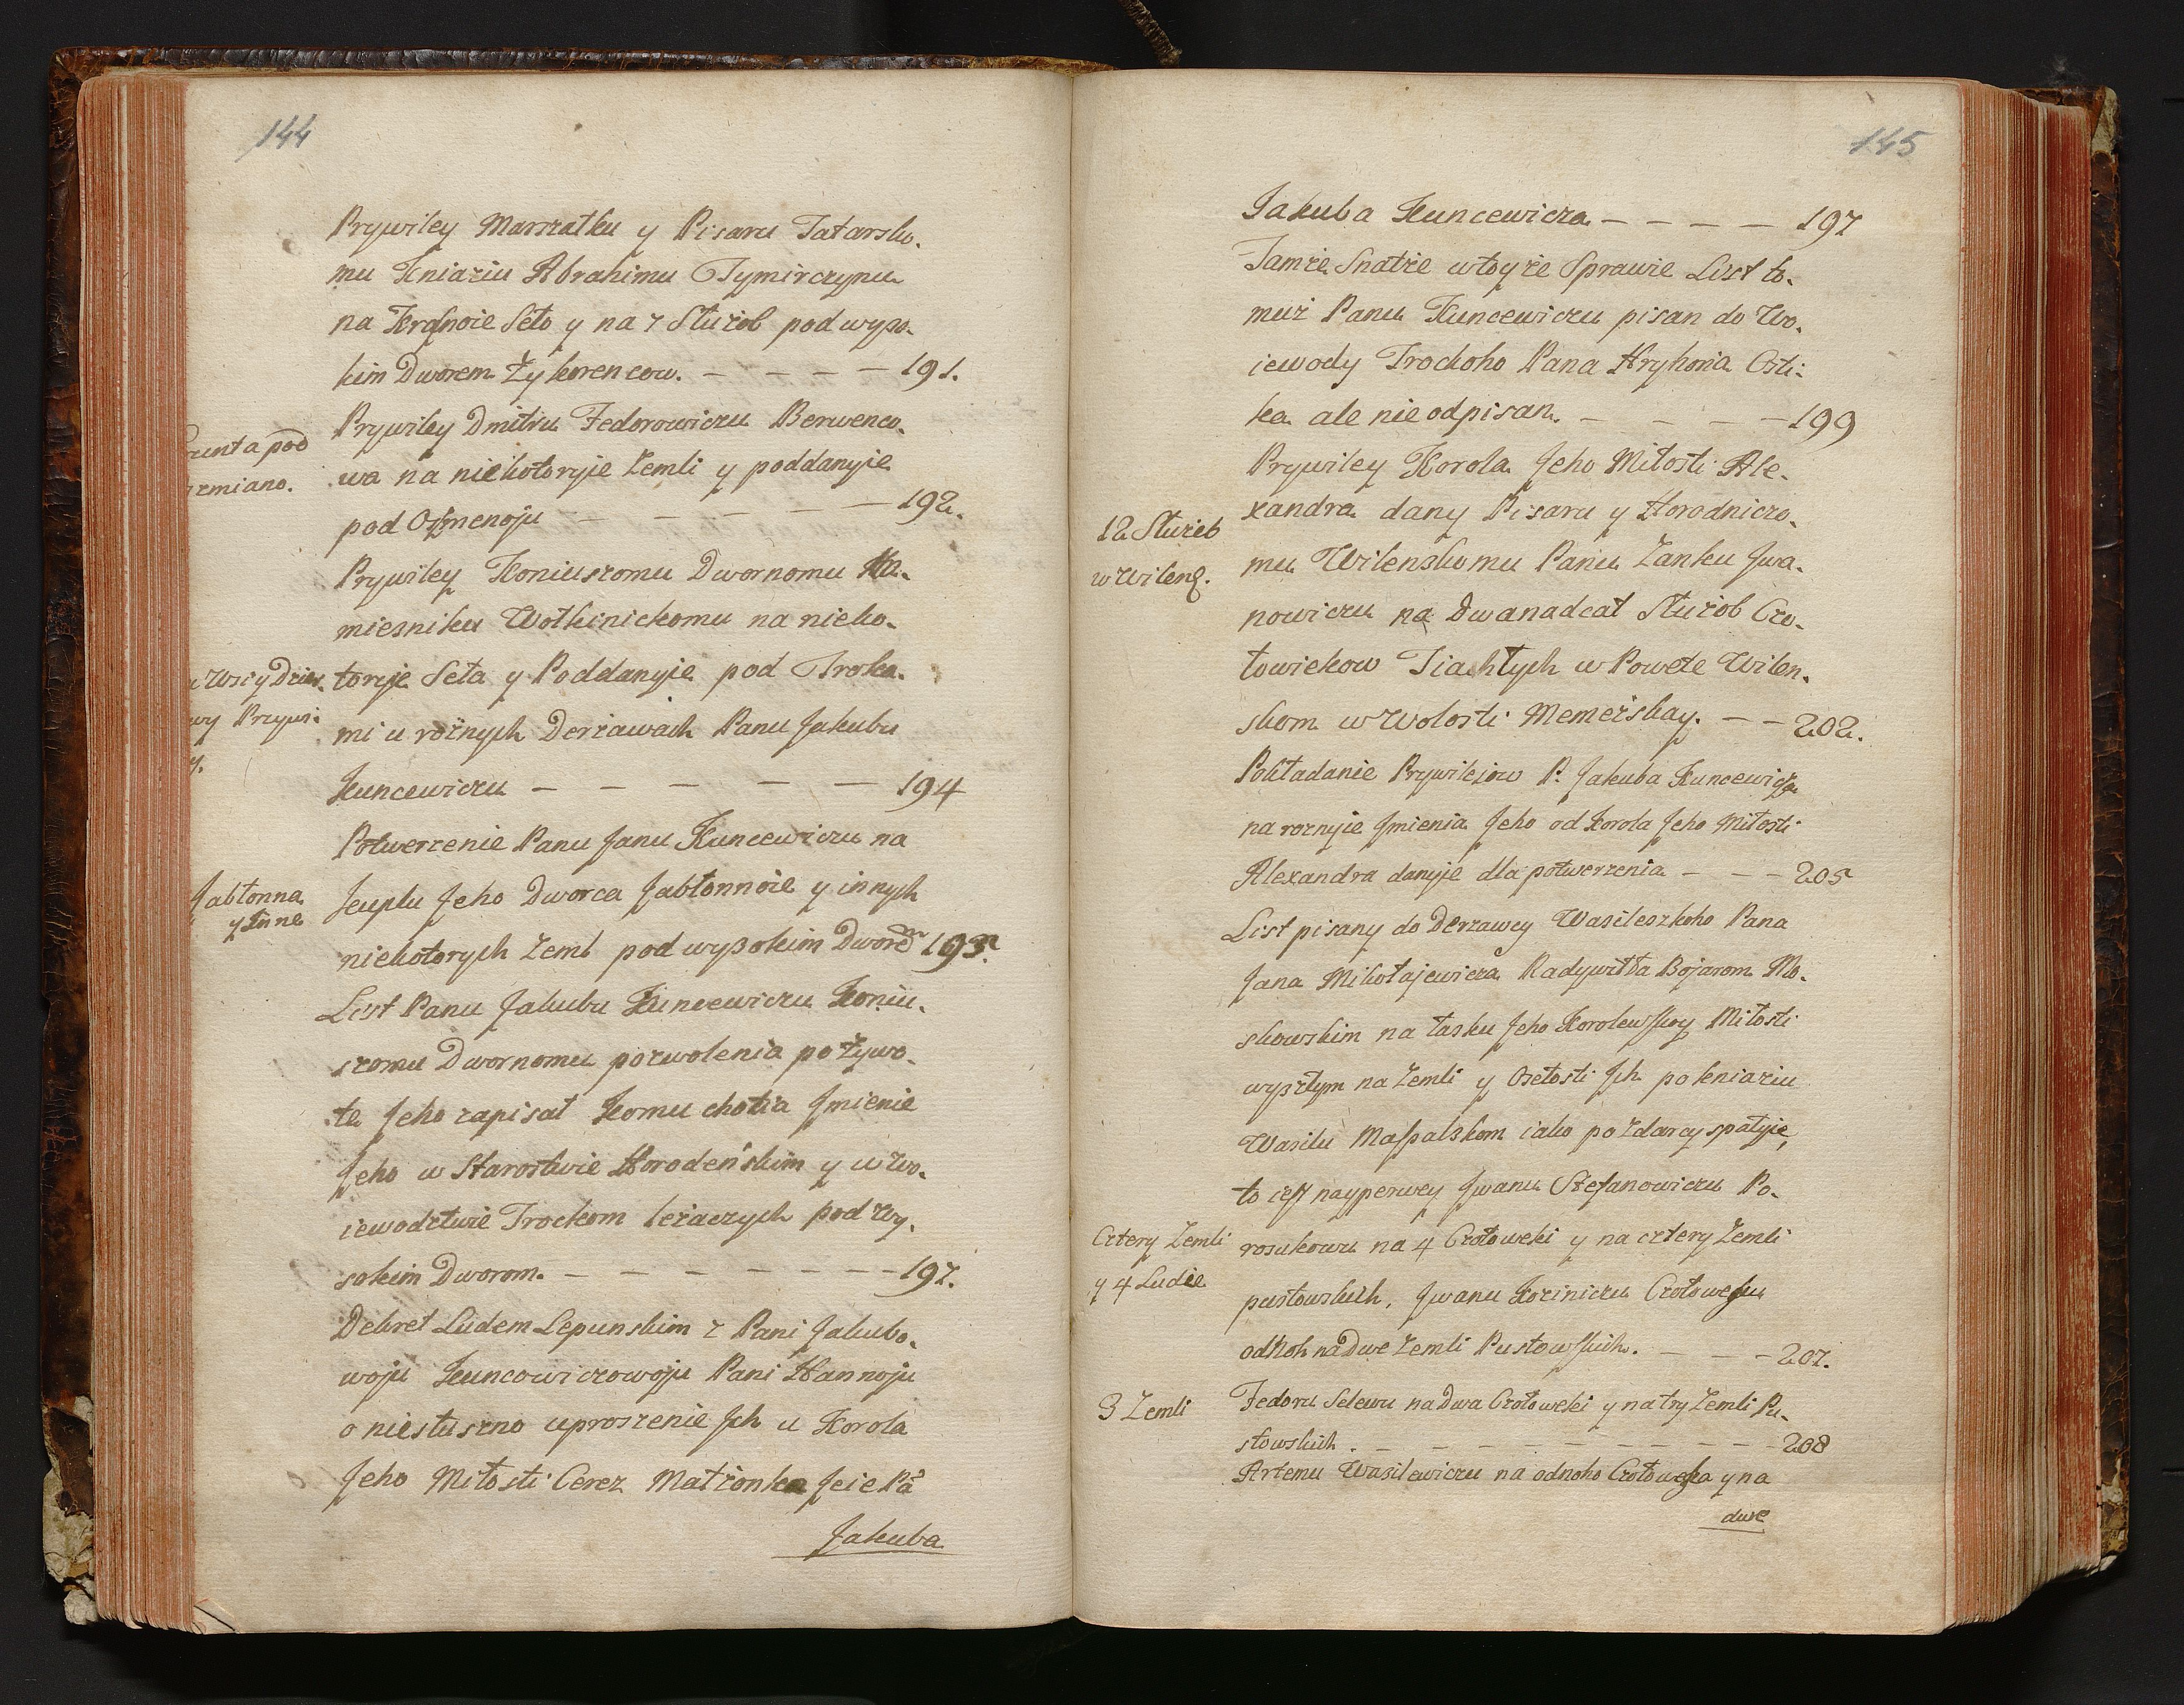 144
Prywiley Marszałku y Pisaru Tatarsko.
mu Kniaziu Abrahimu Tymirczynu
na Krasnoie Seło y na 7 Służob pod wyso.
kim Dworem Żykorencow. – – – – 191.
Prywiley Dmitru Fedorowiczu Berwenco.
wa na niekotoryje Zemli y poddanyje
pod Oszmenoju – – – – – 192.
runta pod
szmiano.
Prywiley Koniuszomu Dwornomu Na.
miesniku Wołkinickomu na nieko.
toryje Seła y Poddanyje pod Troka.
mi u rożnych Derżawach Panu Jakubu
Kuncewiczu – – – – – 194
Wsi y Dzier.
wy Przywi.
y.
Potwerzenie Panu Janu Kuncewiczu na
Jeuplu Jeho Dworca Jabłonnoie y innych
niekotorych Zeml pod wysokim Dwore͠m 195.
Jabłonna
y Inne
List Panu Jakubu Kuncewiczu Koniu.
szomu Dwornomu pozwolenia po Żywo.
te Jeho zapisat Komu chotia Jmienie
Jeho w Starostwie Horodeńskim y u Wo.
iewodztwie Trockom leżaczych pod Wy.
sokim Dworom. – – – – – – – 197.
Dekret Ludem Lepunskim z Pani Jakubo.
woju Kuncowiczowoju Pani Hannoju
o niesłuszno uproszenie Jch u Korola
Jeho Miłosti Cerez Małżonka Jeie Pa
Jakuba
145
Jakuba Kuncewicza – – – – 197
Tamże Snatże wtoyże Sprawie List to.
muż Panu Kuncewiczu pisan do Wo.
iewody Trockoho Pana Hryhoria Osti.
ka ale nie odpisan. – – – – 199
Prywiley Korola Jeho Miłosti Ale.
xandra dany Pisaru y Horodniczo.
mu Wilenskomu Panu Zanku Jwa.
nowiczu na Dwanadcat Służob Czo.
łowiekow Tiachłych w Powete Wilen.
skom w Wolosti Memeżskay. – – 202.
12 Służeb
w Wileng.
Pokładanie Prywilejow P. Jakuba Kuncewicza
na roznyie Jmienia Jeho od Korola Jeho Miłosti
Alexandra danyje dla potwerzenia – – – 205
List pisany do Derzawcy Wasileszkoho Pana
Jana Mikołajewicza Radywiłła Bojarom Mo.
skowskim na łasku Jeho Korolewskoy Miłosti
wyszłym na Zemli y Osełosti Jch po kniaziu
Wasilu Massalskom iako po Zdarcy spałyie,
to iest nayperwey Jwanu Stefanowiczu Po.
rosukowu na 4 Czołoweki y na cztery Zemli
pustowskich, Jwanu Koziniczu Czołoweku
odnoh na Dwe Zemli Pustowskich. – – – 207.
Cztery Zemli
y 4 Ludie
Fedoru Selewu na Dwa Czołoweki y na try Zemli Pu.
stowskich. – – – – – – – – – 208
3 Zemli
Artemu Wasilewiczu na odnoho Czołoweka y na
dwe